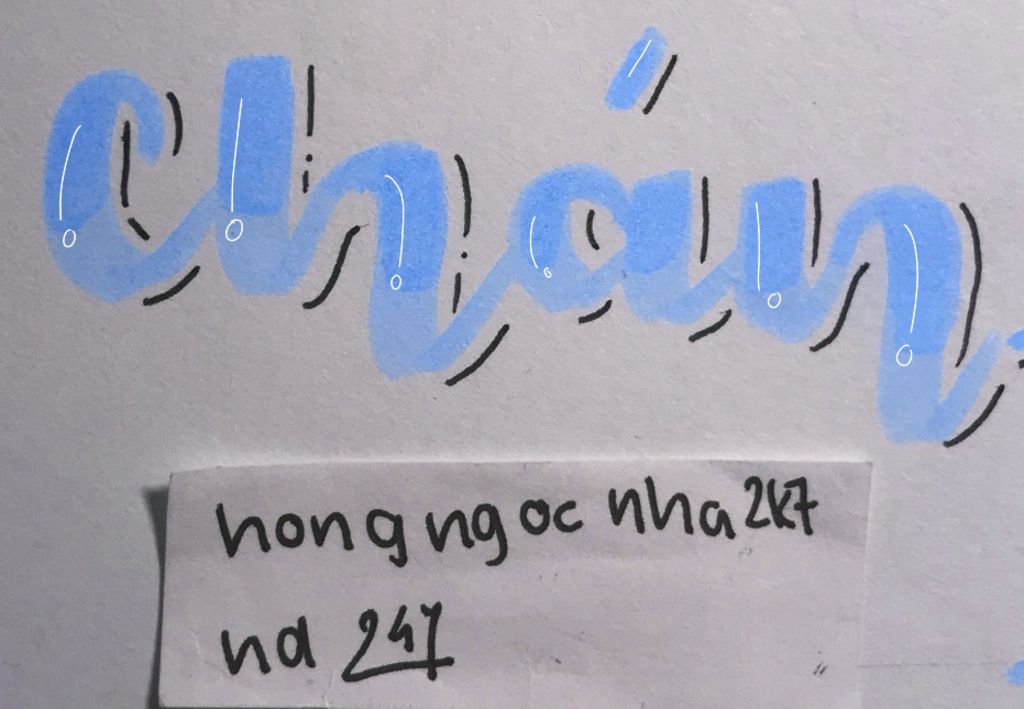 Chán
hong ngoc nha 2k7
nd 247